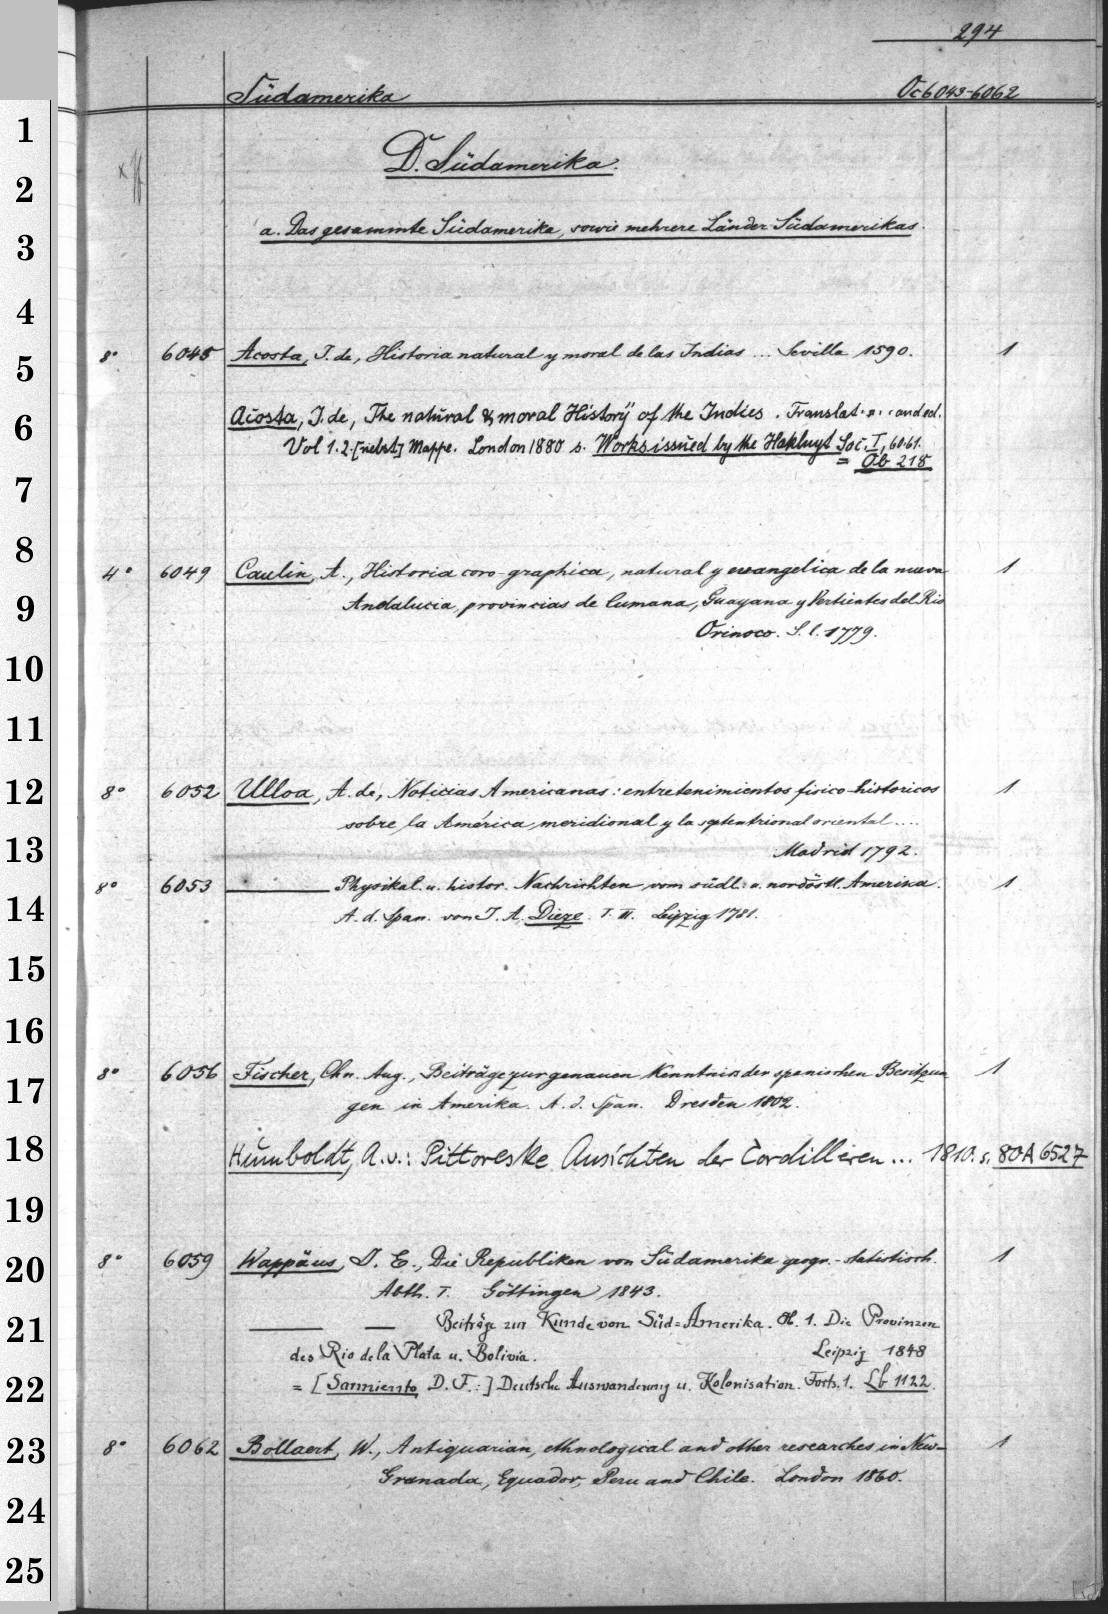 294
Südamerika Oc 6043-6062
D. Südamerika.
a. Das gesammte Südamerika, sowie mehrere Länder Südamerikas.
8° 6045 Acosta, J. de, Historia natural y moral de las Indias ... Sevilla 1590. 1
Acosta, J. de, The natural & moral History of the Indies. Translat. and ed.
Vol 1.2. [nebst] Mappe. London 1880 s. Works issued by the Hakluyt Soc. I, 60.61.
= Ob 218
4° 6049 Caulin, A., Historia coro-graphica, natural y evangelica de la nueva 1
Andalucia, provincias de Cumana, Guayana y Vertientes del Rio
Orinoco. S. l. 1779.
8° 6052 Ulloa, A. de, Noticias Americanas: entretenimientos fisico-historicos 1
sobre la América meridional y la septentrional oriental ....
Madrid 1792.
8° 6053 ——— Physikal. u. histor. Nachrichten vom südl. u. nordöstl. Amerika. 1
A. d. Span. von J. A. Dieze. T. II. Leipzig 1781.
8° 6056 Fischer, Chn. Aug., Beiträge zur genauen Kenntnis der spanischen Besitzun 1
gen in Amerika. A. d. Span. Dresden 1802.
Humboldt, A. v.: Pittoreske Ansichten der Cordilleren ... 1810. s. 80 A 6527
8° 6059 Wappäus, J. E., Die Republiken von Südamerika geogr.-statistisch. 1
Abth. I. Göttingen 1843.
——— — Beiträge zur Kunde von Süd=Amerika. H. 1. Die Provinzen
des Rio de la Plata u. Bolivia. Leipzig 1848
= [Sarmiento, D. F.:] Deutsche Auswanderung u. Kolonisation. Forts. 1. Lb 1122.
8° 6062 Bollaert, W., Antiquarian, ethnological and other researches in New- 1
Granada, Equador, Peru and Chile. London 1860.
1
2
3
4
5
6
7
8
9
10
11
12
13
14
15
16
17
18
19
20
21
22
23
24
25